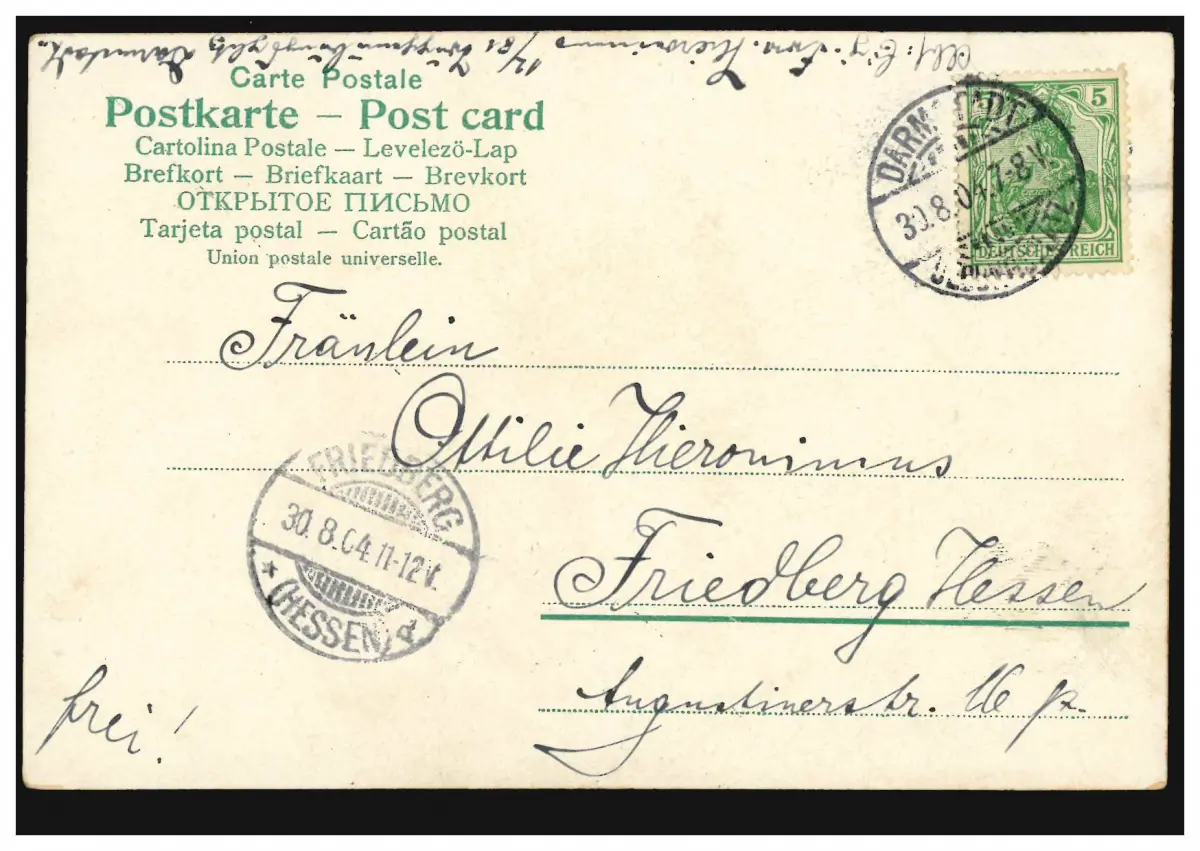 Abs: Hieronimus 12/ Darmstadt.
Carte Postale
Postkarte – Post card
Cartolina Postale – Levelezö-Lap
Brefkort – Briefkaart – Brevkort
ОТКРЫТОЕ ПИСЬМО
Tarjeta postal – Cartão postal
Union postale universelle.
5
DEUTSCHES REICH
DARMSTADT
30.8.04.7-8V.
Fräulein
Ottilie Hieronimus
FRIEDBERG
30.8.04.11-12V.
* (HESSEN)
Friedberg Hessen
Augustinerstr. 16 p.
frei!